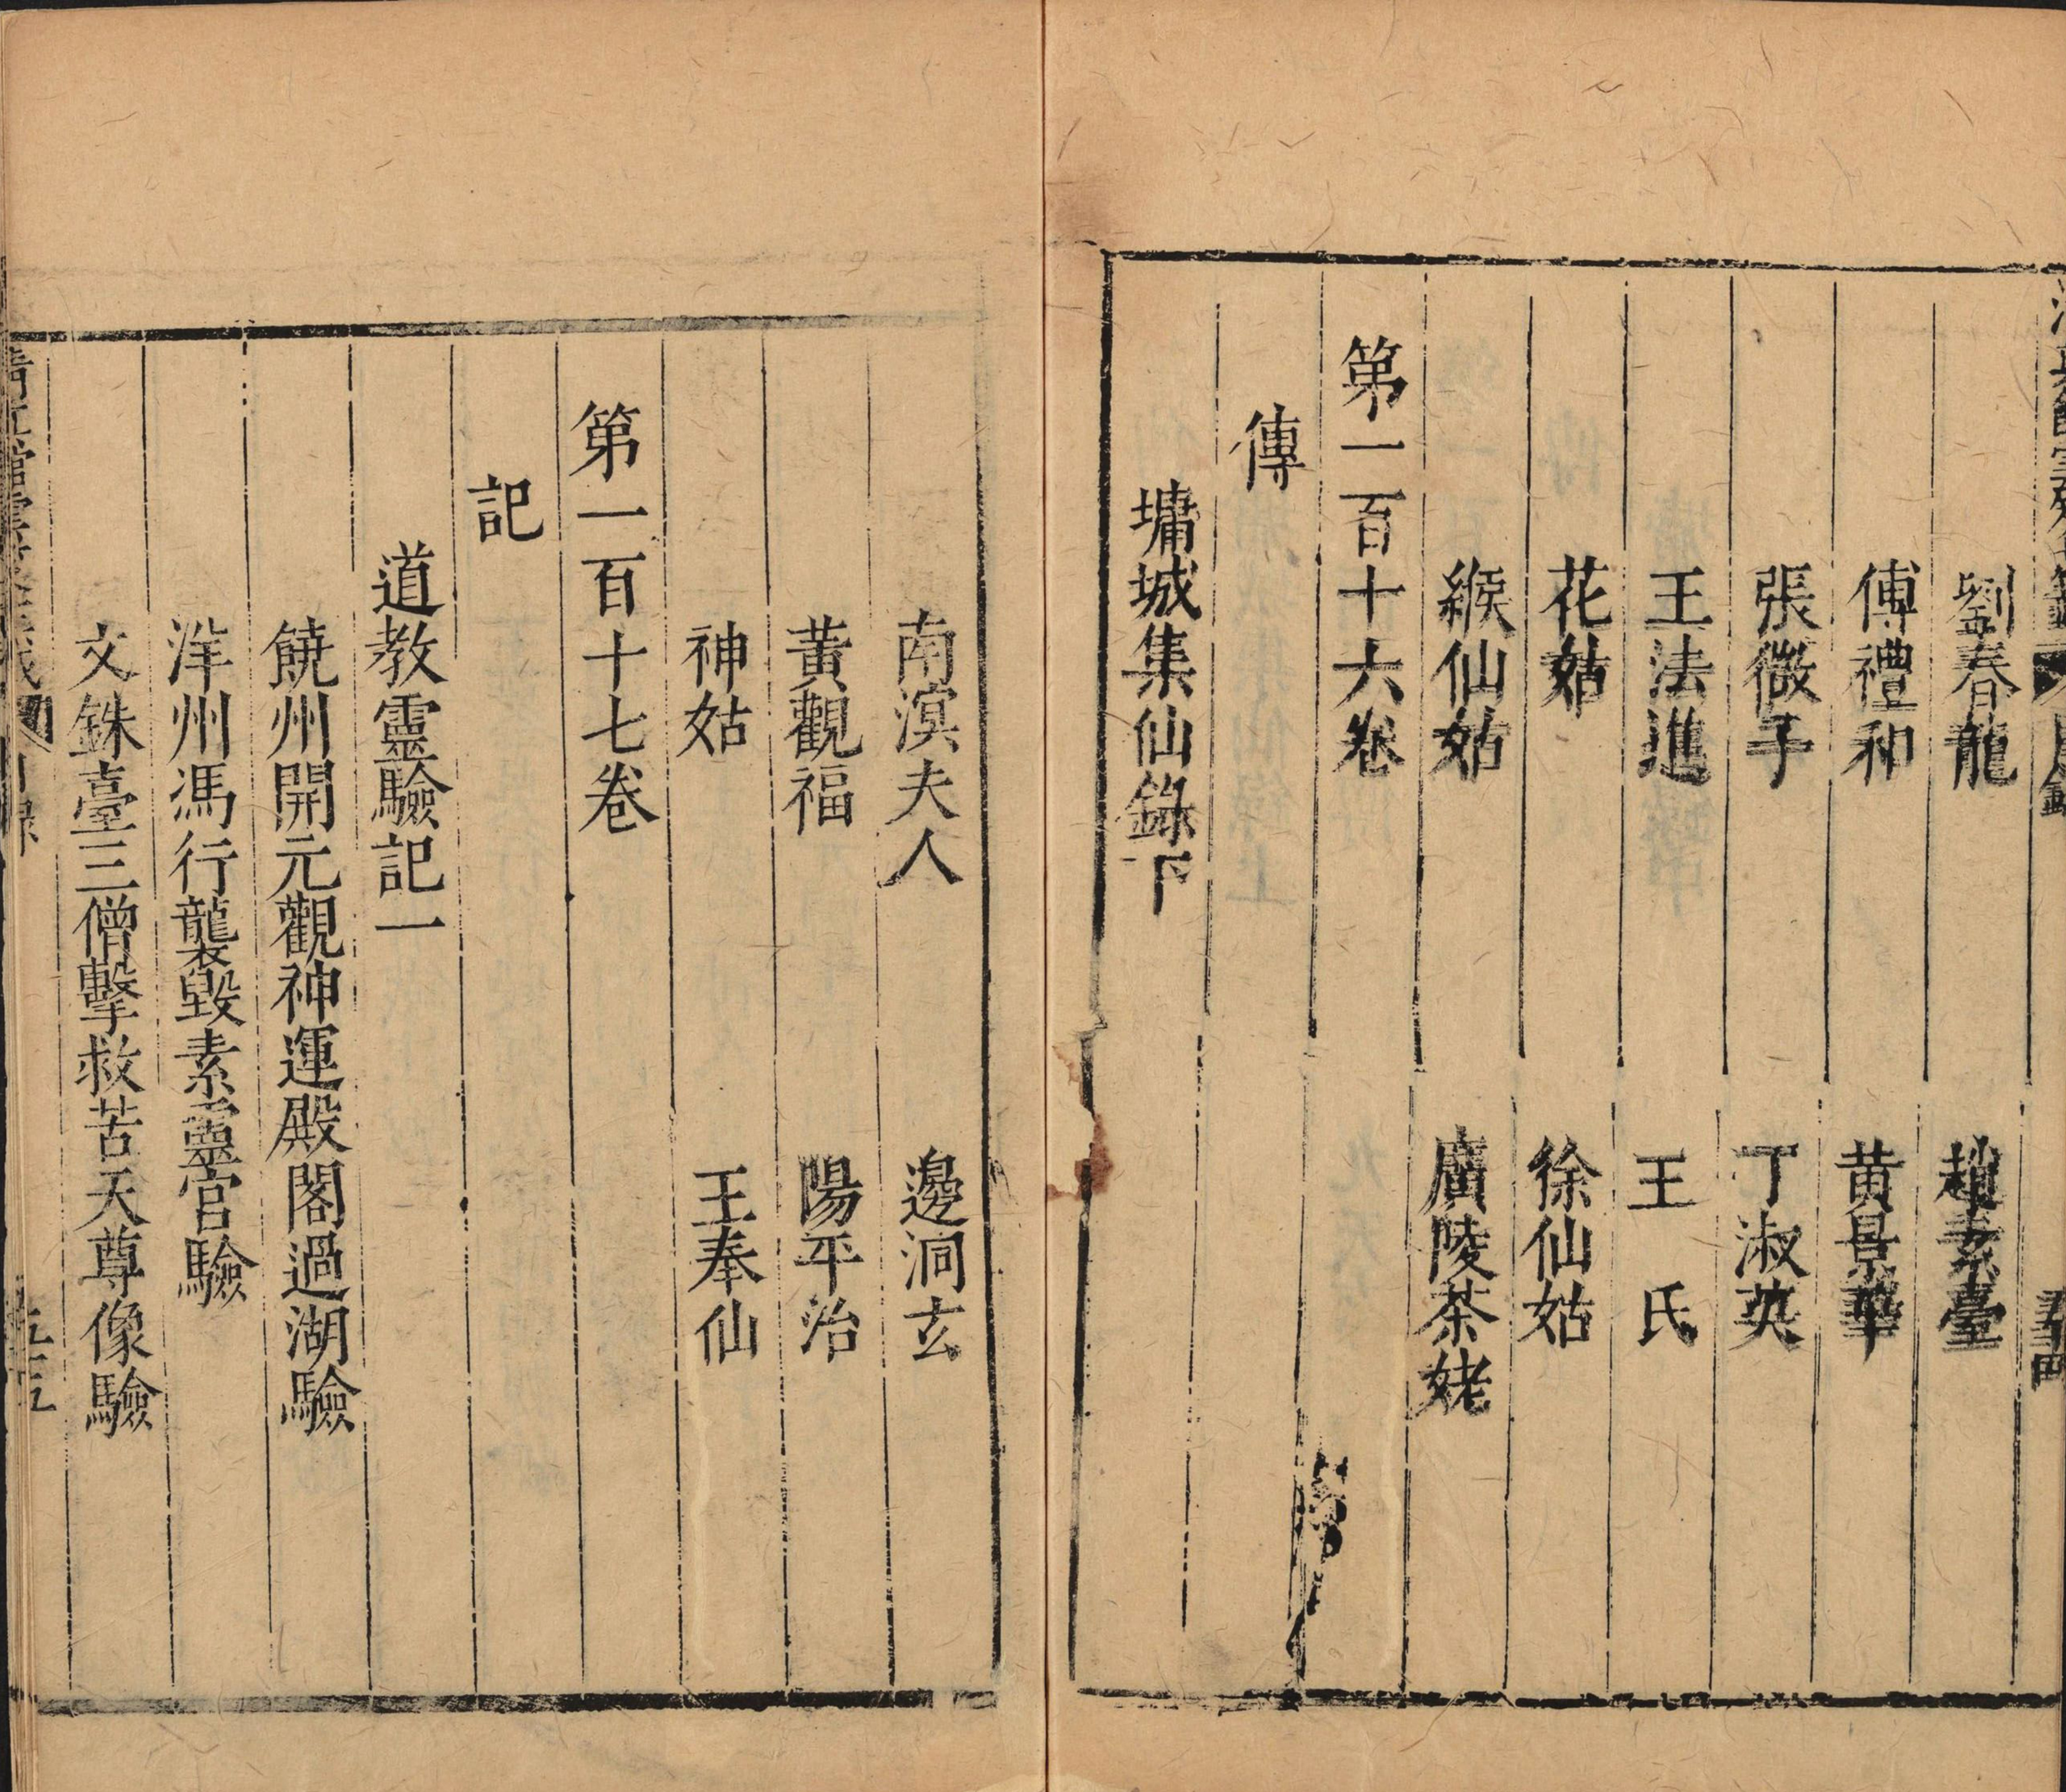 劉春龍　趙素臺
傅禮和　黃景華
張微子　丁淑英
王法進　王氏
花姑　徐仙姑
緱仙姑　廣陵茶姥
第一百十六卷
傳
墉城集仙錄下
南溟夫人　邊洞玄
黃觀福　陽平治
神姑　王奉仙
第一百十七卷
記
道教靈驗記一
饒州開元觀神運殿閣過湖驗
洋州馮行襲毀素靈官驗
文銖臺三僧擊救苦天尊像驗